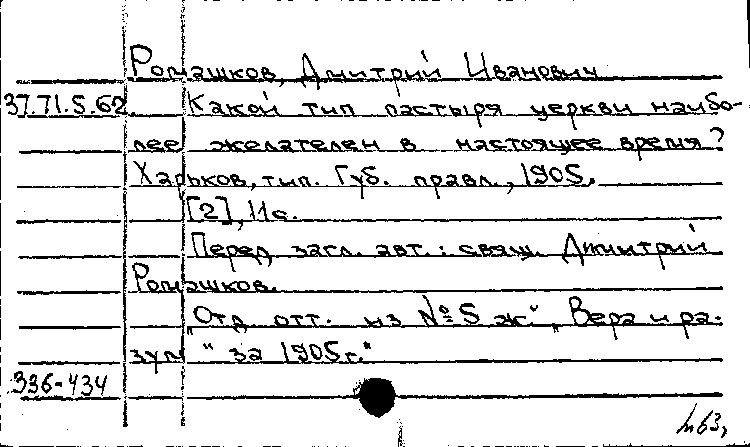 Ромашков, Дмитрий Иванович
37.71.5.62 Какой тип пастыря церкви наибо-
лее желателен в настоящее время?
Харьков, тип. Губ. правл., 1905.
[2], 11с.
Перед загл. авт.: свящ. Дмитрий
Ромашков.
"Отд. отт. из №5 ж. "Вера и ра-
зум" за 1905г."
336-434